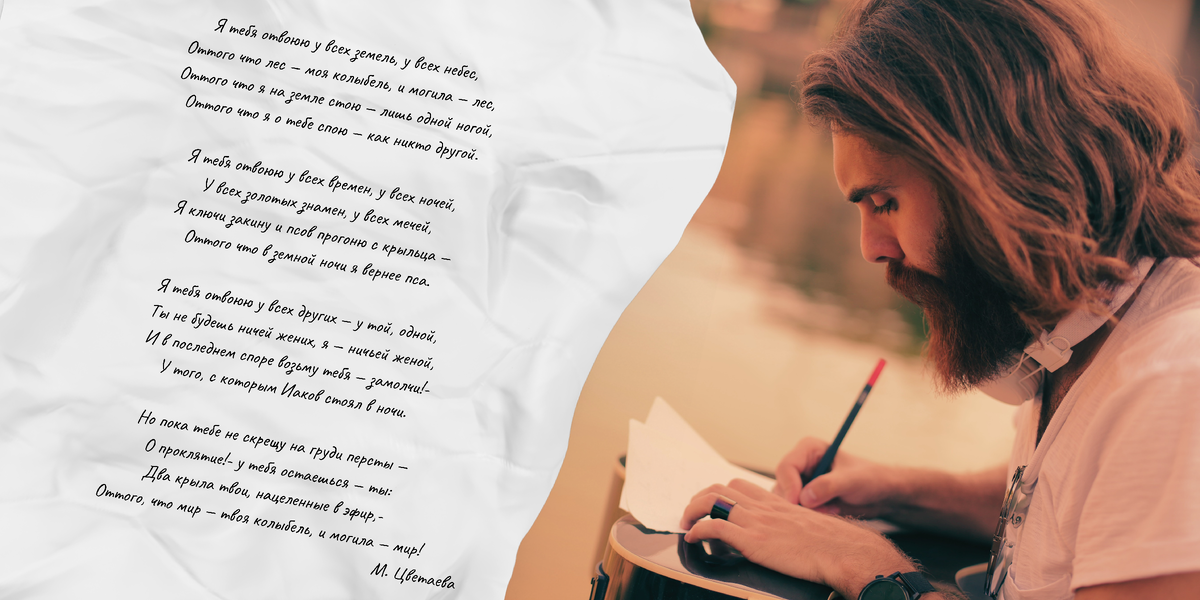 Я тебя отвоюю у всех земель, у всех небес,
Оттого что лес — моя колыбель, и могила — лес,
Оттого что я на земле стою — лишь одной ногой,
Оттого что я о тебе спою — как никто другой.
Я тебя отвоюю у всех времен, у всех ночей,
У всех золотых знамен, у всех мечей,
Я ключи закину и псов прогоню с крыльца —
Оттого что в земной ночи я вернее пса.
Я тебя отвоюю у всех других — у той, одной,
Ты не будешь ничей жених, я — ничьей женой,
И в последнем споре возьму тебя — замолчи!-
У того, с которым Иаков стоял в ночи.
Но пока тебе не скрещу на груди персты —
О проклятие!- у тебя остаешься — ты:
Два крыла твои, нацеленные в эфир,-
Оттого, что мир — твоя колыбель, и могила — мир!
М. Цветаева